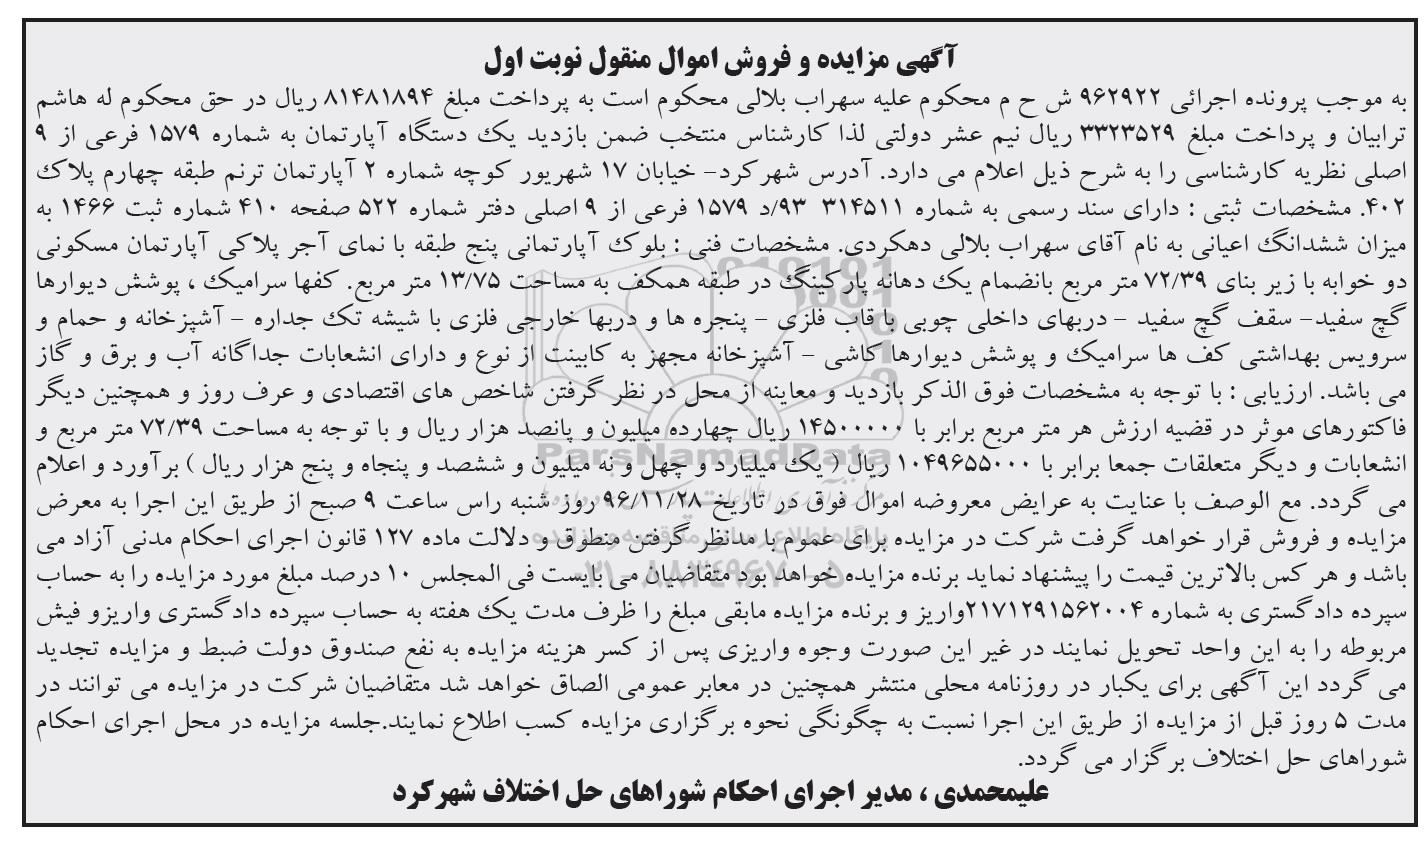 آگهی مزایده و فروش اموال منقول نوبت اول
به موجب پرونده اجرائی ۹۶۲۹۲۲ ش ح م محکوم علیه سهراب بلالی محکوم است به پرداخت مبلغ ۸۱۴۸۱۸۹۴ ریال در حق محکوم له هاشم
ترابیان و پرداخت مبلغ ۳۳۲۳۵۲۹ ریال نیم عشر دولتی لذا کارشناس منتخب ضمن بازدید یک دستگاه آپارتمان به شماره ۱۵۷۹ فرعی از ۹
اصلی نظریه کارشناسی را به شرح ذیل اعلام می دارد. آدرس شهرکرد- خیابان ۱۷ شهریور کوچه شماره ۲ آپارتمان ترنم طبقه چهارم پلاک
۴۰۲. مشخصات ثبتی : دارای سند رسمی به شماره ۳۱۴۵۱۱ ۹۳/د ۱۵۷۹ فرعی از ۹ اصلی دفتر شماره ۵۲۲ صفحه ۴۱۰ شماره ثبت ۱۴۶۶ به
میزان ششدانگ اعیانی به نام آقای سهراب بلالی دهکردی. مشخصات فنی : بلوک آپارتمانی پنج طبقه با نمای آجر پلاکی آپارتمان مسکونی
دو خوابه با زیر بنای ۷۲/۳۹ متر مربع بانضمام یک دهانه پارکینگ در طبقه همکف به مساحت ۱۳/۷۵ متر مربع. کفها سرامیک ، پوشش دیوارها
گچ سفید- سقف گچ سفید - دربهای داخلی چوبی با قاب فلزی - پنجره ها و دربها خارجی فلزی با شیشه تک جداره - آشپزخانه و حمام و
سرویس بهداشتی کف ها سرامیک و پوشش دیوارها کاشی - آشپزخانه مجهز به کابینت از نوع و دارای انشعابات جداگانه آب و برق و گاز
می باشد. ارزیابی : با توجه به مشخصات فوق الذکر بازدید و معاینه از محل در نظر گرفتن شاخص های اقتصادی و عرف روز و همچنین دیگر
فاکتورهای موثر در قضیه ارزش هر متر مربع برابر با ۱۴۵۰۰۰۰۰ ریال چهارده میلیون و پانصد هزار ریال و با توجه به مساحت ۷۲/۳۹ متر مربع و
انشعابات و دیگر متعلقات جمعا برابر با ۱۰۴۹۶۵۵۰۰۰ ریال ( یک میلیارد و چهل و نه میلیون و ششصد و پنجاه و پنج هزار ریال ) برآورد و اعلام
می گردد. مع الوصف با عنایت به عرایض معروضه اموال فوق در تاریخ ۹۶/۱۱/۲۸ روز شنبه راس ساعت ۹ صبح از طریق این اجرا به معرض
مزایده و فروش قرار خواهد گرفت شرکت در مزایده برای عموم با مدنظر گرفتن منطوق و دلالت ماده ۱۲۷ قانون اجرای احکام مدنی آزاد می
باشد و هر کس بالاترین قیمت را پیشنهاد نماید برنده مزایده خواهد بود متقاضیان می بایست فی المجلس ۱۰ درصد مبلغ مورد مزایده را به حساب
سپرده دادگستری به شماره ۲۱۷۱۲۹۱۵۶۲۰۰۴واریز و برنده مزایده مابقی مبلغ را ظرف مدت یک هفته به حساب سپرده دادگستری واریزو فیش
مربوطه را به این واحد تحویل نمایند در غیر این صورت وجوه واریزی پس از کسر هزینه مزایده به نفع صندوق دولت ضبط و مزایده تجدید
می گردد این آگهی برای یکبار در روزنامه محلی منتشر همچنین در معابر عمومی الصاق خواهد شد متقاضیان شرکت در مزایده می توانند در
مدت ۵ روز قبل از مزایده از طریق این اجرا نسبت به چگونگی نحوه برگزاری مزایده کسب اطلاع نمایند.جلسه مزایده در محل اجرای احکام
شوراهای حل اختلاف برگزار می گردد.
علیمحمدی ، مدیر اجرای احکام شوراهای حل اختلاف شهرکرد
ParsNamadData
پایگاه اطلاع رسانی مناقصه و مزایده
۰۲۱-۸۸۳۴۹۶۷۰-۵